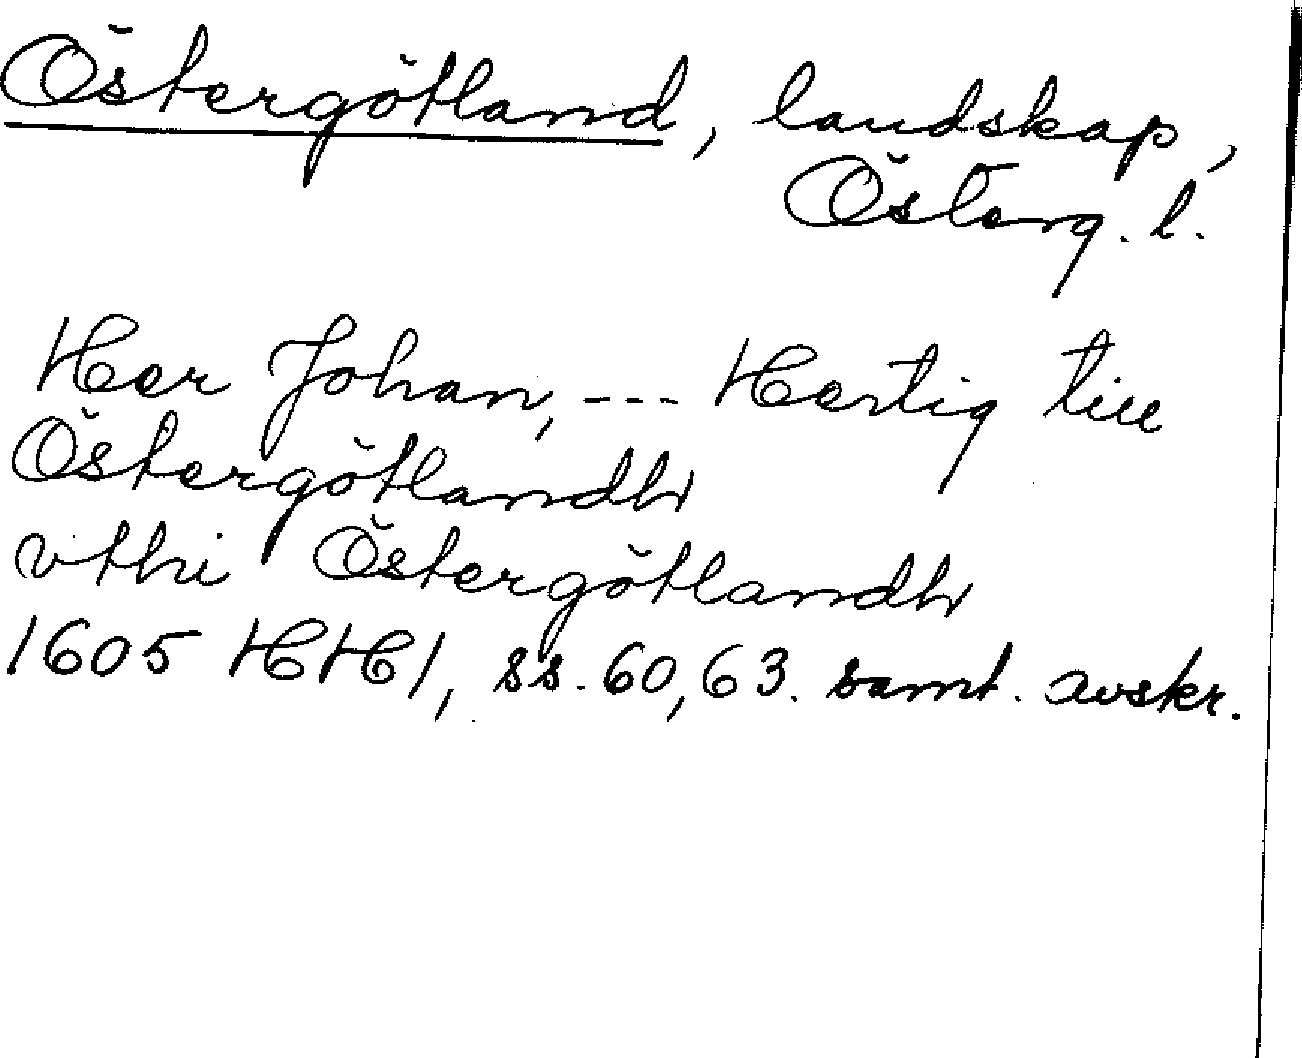 Östergötland, landskap,
Österg. l.
Her Johan, --- Hertig till
Östergötlandh
vthi Östergötlandh
1605 HH1, ss. 60, 63. samt. avskr.